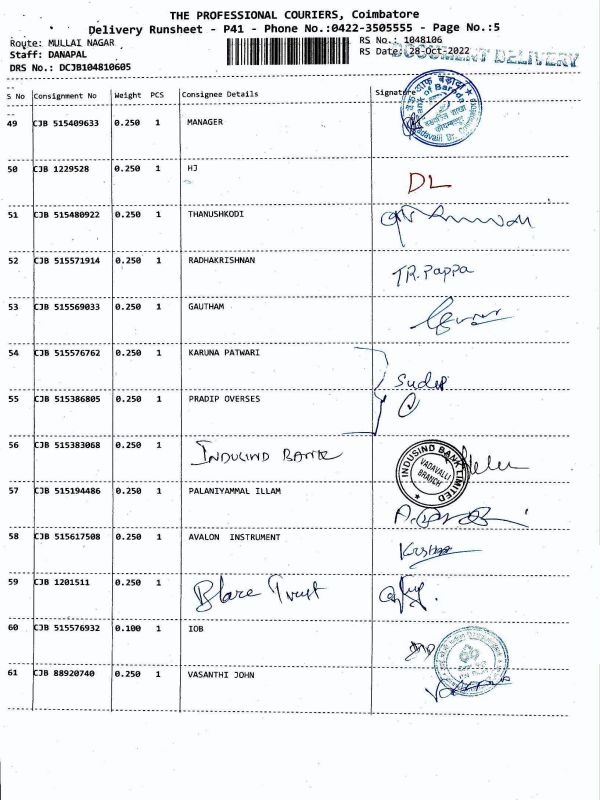 THE PROFESSIONAL COURIERS, Coimbatore
Delivery Runsheet - P41 - Phone No.:0422-3505555 - Page No.:5
Route: MULLAI NAGAR RS No.: 1048106
Staff: DANAPAL RS Date: 28-Oct-2022 DOCUMENT DELIVERY
DRS No.: DCJB104810605
S No Consignment No Weight PCS Consignee Details Signature
49 CJB 515409633 0.250 1 MANAGER
50 CJB 1229528 0.250 1 HJ DL
51 CJB 515480922 0.250 1 THANUSHKODI
52 CJB 515571914 0.250 1 RADHAKRISHNAN TR.Pappa
53 CJB 515569033 0.250 1 GAUTHAM
54 CJB 515576762 0.250 1 KARUNA PATWARI
Sudip
55 CJB 515386805 0.250 1 PRADIP OVERSES
56 CJB 515383068 0.250 1 INDUSIND BANK INDUSIND BANK LIMITED VADAVALLI BRANCH
57 CJB 515194486 0.250 1 PALANIYAMMAL ILLAM
58 CJB 515617508 0.250 1 AVALON INSTRUMENT
59 CJB 1201511 0.250 1 Trust
60 CJB 515576932 0.100 1 IOB
61 CJB 88920740 0.250 1 VASANTHI JOHN